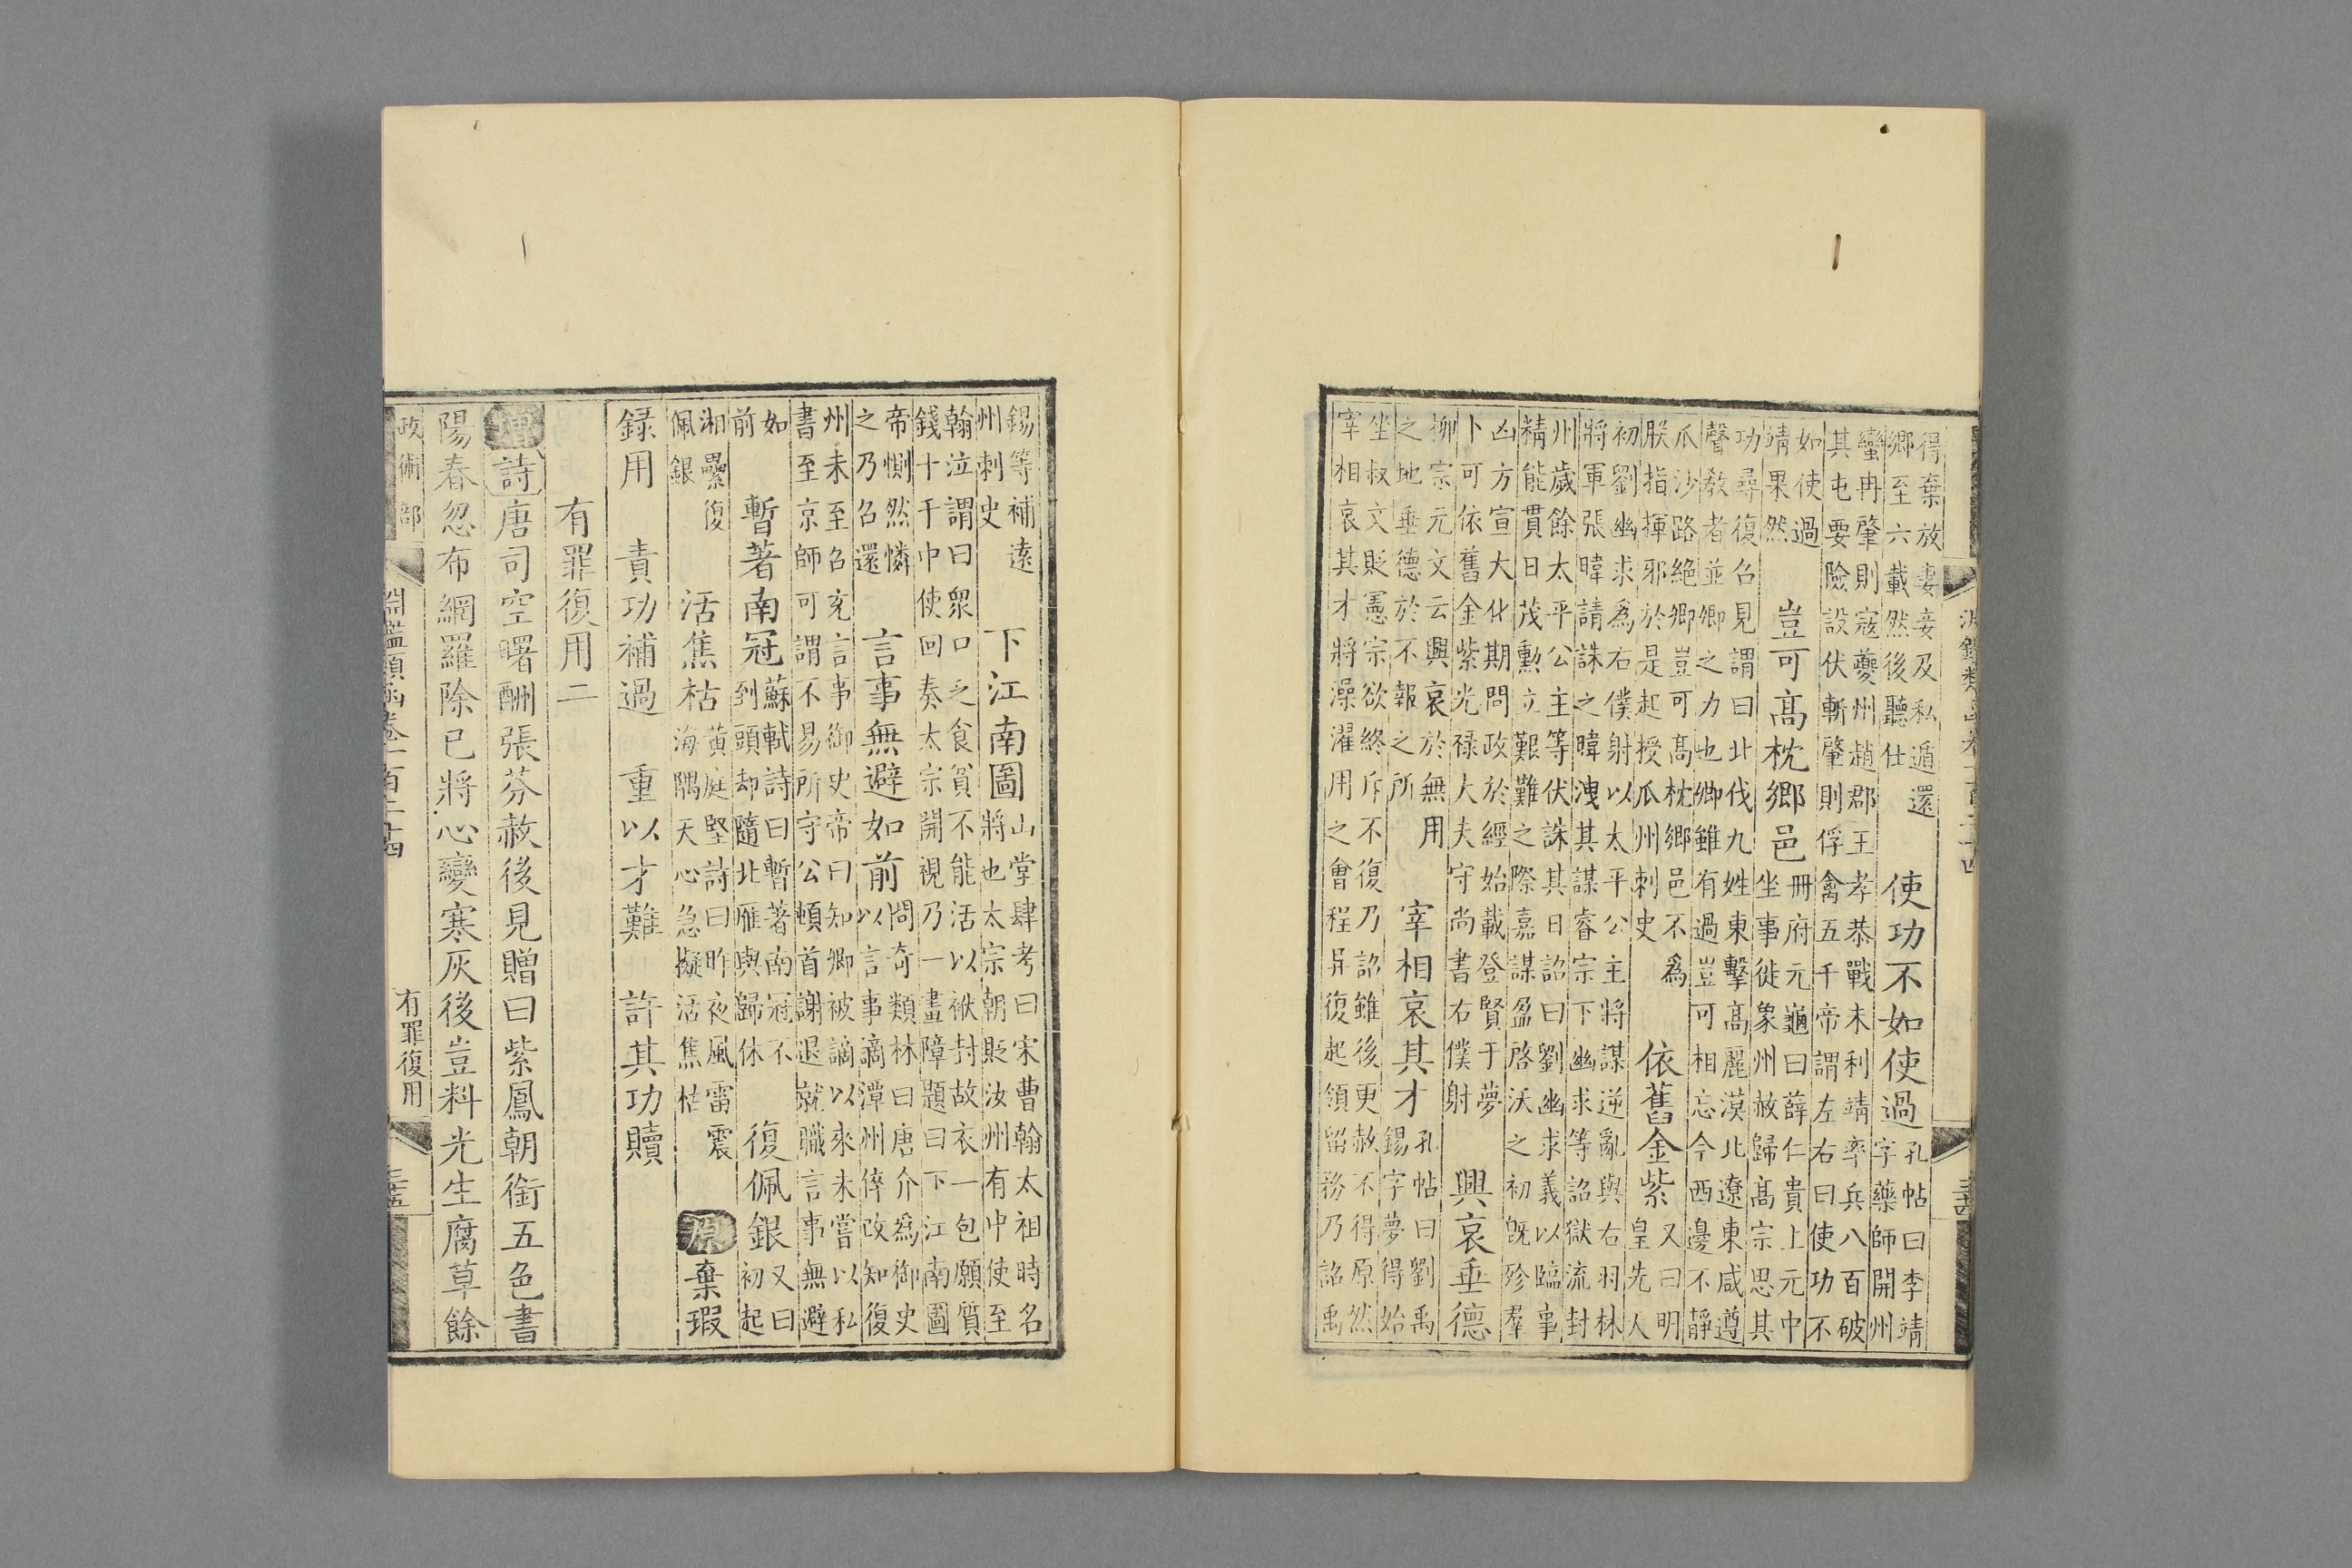 淵鑑類函卷一百二十四 三十四
得棄放妻妾及私遁還
鄉至六載然後聽仕
使功不如使過
孔帖曰李靖
字藥師開州
蠻冉肇則寇夔州趙郡王孝恭戰未利靖率兵八百破
其屯要險設伏斬肇則俘禽五千帝謂左右曰使功不
如使過
靖果然
豈可高枕鄉邑
冊府元龜曰薛仁貴上元中
坐事徙象州赦歸高宗思其
功尋復召見謂曰北伐九姓東擊高麗漠北遼東咸遵
聲教者並卿之力也卿雖有過豈可相忘今西邊不靜
瓜沙路絶卿豈可高枕鄉邑不爲
朕指揮邪於是起授瓜州刺史
依舊金紫
又曰明
皇先人
初劉幽求爲右僕射以太平公主將謀逆亂與右羽林
將軍張暐請誅之暐洩其謀睿宗下幽求等詔獄流封
州歲餘太平公主等伏誅其日詔曰劉幽求義以臨事
精能貫日茂勳立艱難之際嘉謀盈啓沃之初旣殄羣
凶方宣大化期問政於經始載登賢于夢
卜可依舊金紫光禄大夫守尚書右僕射
興哀垂德
柳宗元文云興哀於無用
之地垂德於不報之所
宰相哀其才
孔帖曰劉禹
錫字夢得始
坐叔文貶憲宗欲終斥不復乃詔雖後更赦不得原然
宰相哀其才將澡濯用之會程异復起領留務乃詔禹
錫等補遠
州刺史
下江南圖
山堂肆考曰宋曹翰太祖時名
將也太宗朝貶汝州有中使至
翰泣謂曰衆口乏食貧不能活以袱封故衣一包願質
錢十千中使回奏太宗開視乃一畫障題曰下江南圖
帝惻然憐
之乃召還
言事無避如前
問奇類林曰唐介爲御史
以言事謫潭州倅改知復
州未至召充言事御史帝曰知卿被謫以來未嘗以私
書至京師可謂不易所守公頓首謝退就職言事無避
如
前
暫著南冠
蘇軾詩曰暫著南冠不
到頭却隨北雁與歸休
復佩銀
又曰
初起
湘纍復
佩銀
活焦枯
黃庭堅詩曰昨夜風雷震
海隅天心急擬活焦枯
原 棄瑕
録用 責功補過 重以才難 許其功贖
有罪復用二
增 詩 唐司空曙酬張芬赦後見贈曰紫鳳朝銜五色書
陽春忽布網羅除已將心變寒灰後豈料光生腐草餘
政術部 淵鑑類函卷一百二十四 有罪復用 三十五